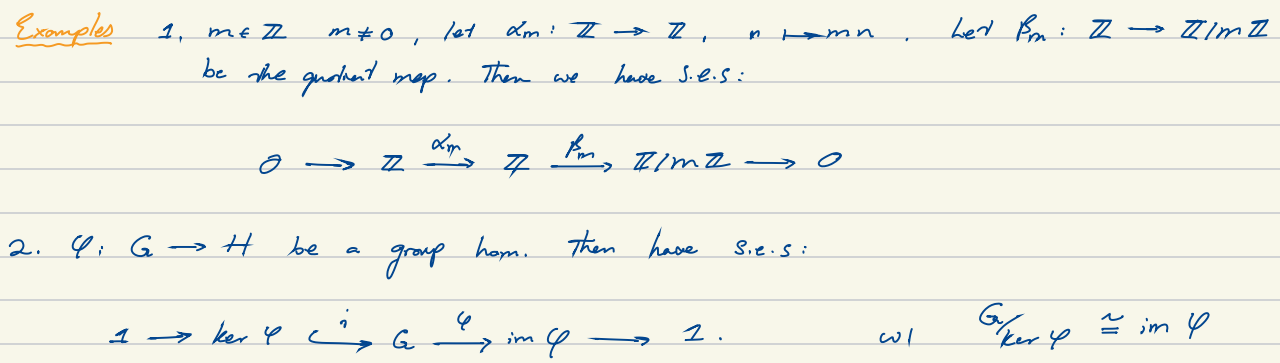 Examples 1, m ∈ ℤ m ≠ 0, let α_m : ℤ → ℤ, n ↦ mn. Let β_m : ℤ → ℤ/mℤ
be the quotient map. Then we have s.e.s:
0 → ℤ --α_m--> ℤ --β_m--> ℤ/mℤ → 0
2. φ: G → H be a group hom. Then have s.e.s:
1 → ker φ ↪^i G --φ--> im φ → 1. w/ G/ker φ ≅ im φ